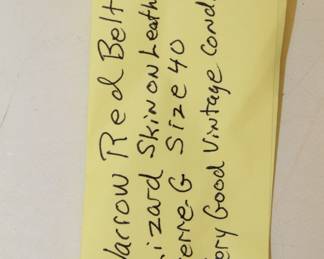 Narrow Red Belt
Lizard Skin on Leath
erre-G Size 40
Very Good Vintage Cond.